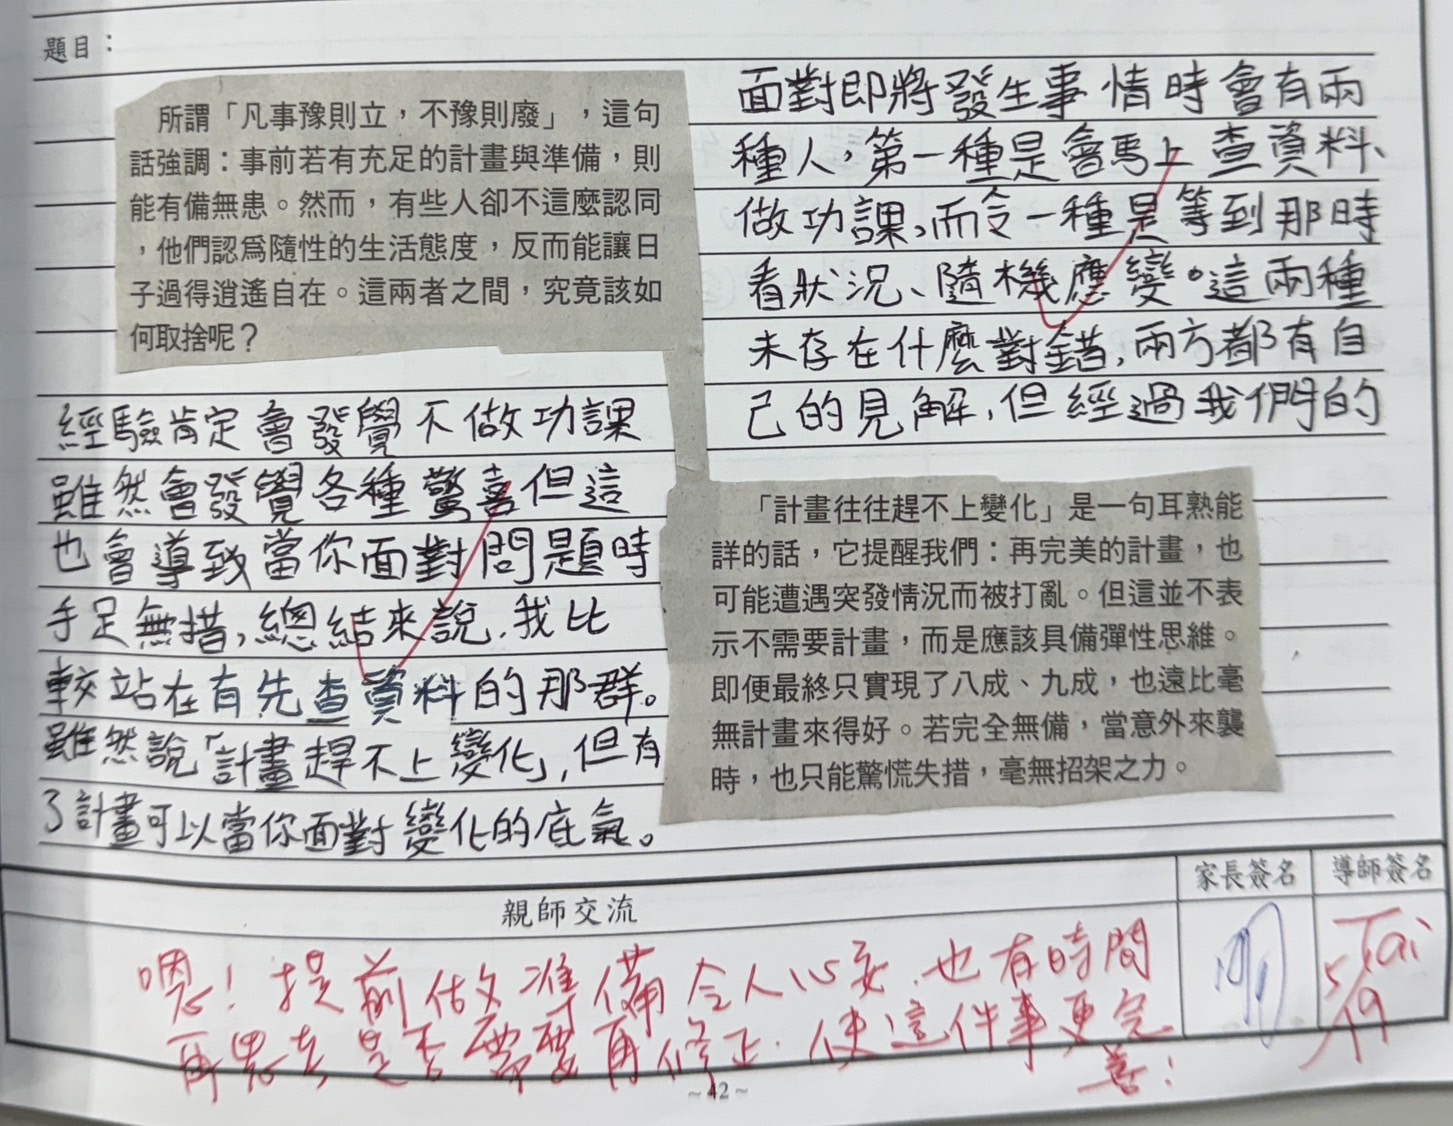 題目：
所謂「凡事豫則立，不豫則廢」，這句
話強調：事前若有充足的計畫與準備，則
能有備無患。然而，有些人卻不這麼認同
，他們認為隨性的生活態度，反而能讓日
子過得逍遙自在。這兩者之間，究竟該如
何取捨呢？
面對即將發生事情時會有兩
種人，第一種是會馬上查資料、
做功課，而令一種是等到那時
看狀況、隨機應變。這兩種
未存在什麼對錯，兩方都有自
己的見解，但經過我們的
經驗肯定會發覺不做功課
雖然會發覺各種驚喜但這
也會導致當你面對問題時
手足無措，總結來說，我比
較站在有先查資料的那群。
雖然說「計畫趕不上變化」，但有
了計畫可以當你面對變化的底氣。
「計畫往往趕不上變化」是一句耳熟能
詳的話，它提醒我們：再完美的計畫，也
可能遭遇突發情況而被打亂。但這並不表
示不需要計畫，而是應該具備彈性思維。
即便最終只實現了八成、九成，也遠比毫
無計畫來得好。若完全無備，當意外來襲
時，也只能驚慌失措，毫無招架之力。
親師交流
家長簽名
導師簽名
嗯！提前做準備令人心安，也有時間
再思考是否需要再修正，使這件事更完
善！
Tai
5/19
~42~